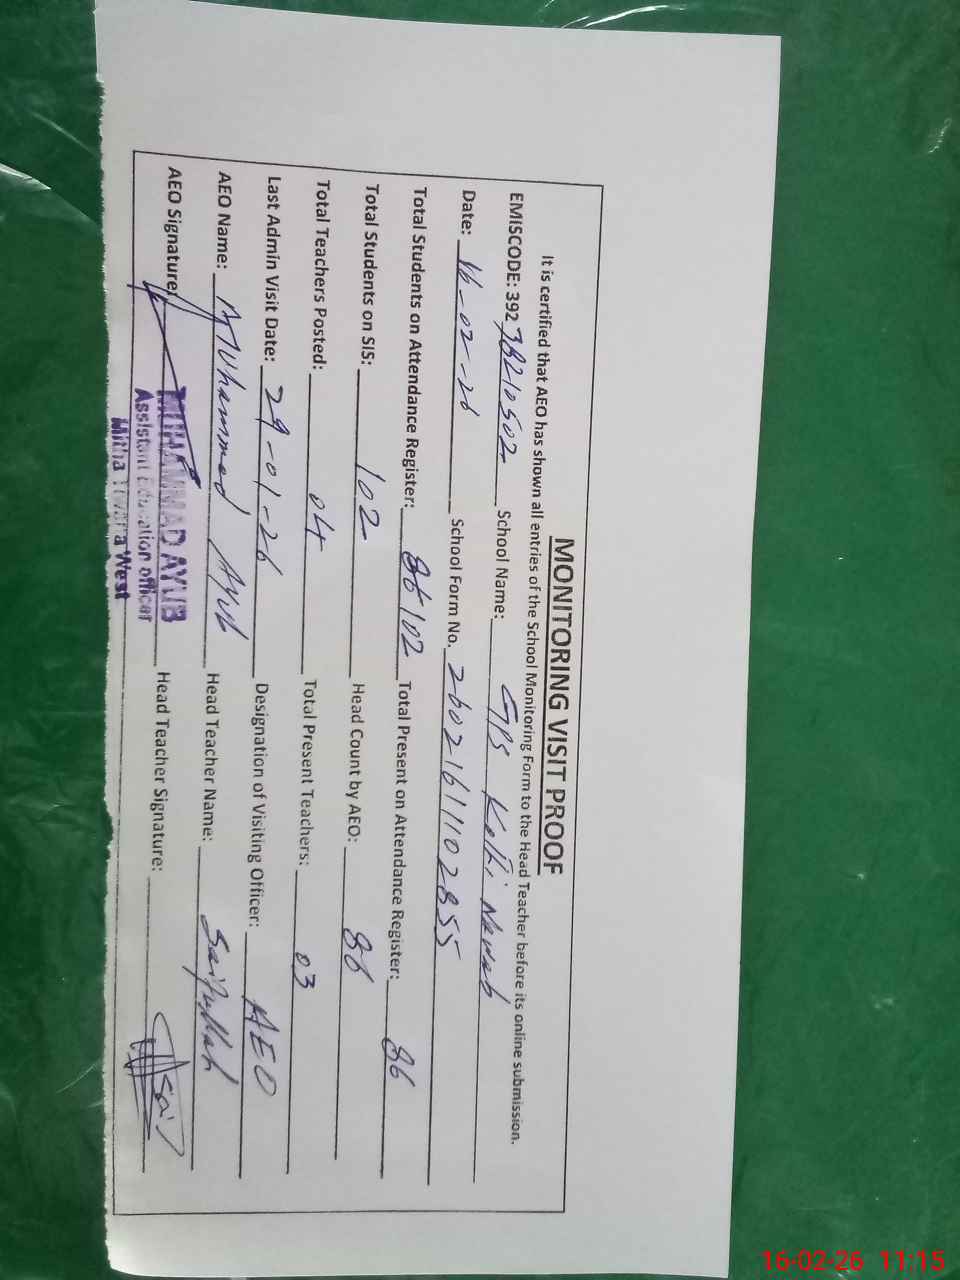 MONITORING VISIT PROOF
It is certified that AEO has shown all entries of the School Monitoring Form to the Head Teacher before its online submission.
EMISCODE: 39238210502 School Name: GPS Kotki Nawab
Date: 16-02-26 School Form No. 26021611102855
Total Students on Attendance Register: 86/102 Total Present on Attendance Register: 86
Total Students on SIS: 102 Head Count by AEO: 86
Total Teachers Posted: 04 Total Present Teachers: 03
Last Admin Visit Date: 29-01-26 Designation of Visiting Officer: AEO
AEO Name: Muhammad Ayub Head Teacher Name: Saifullah
AEO Signature: Head Teacher Signature:
MUHAMMAD AYUB
Assistant Education officer
Mitha Tiwana West
16-02-26 11:15